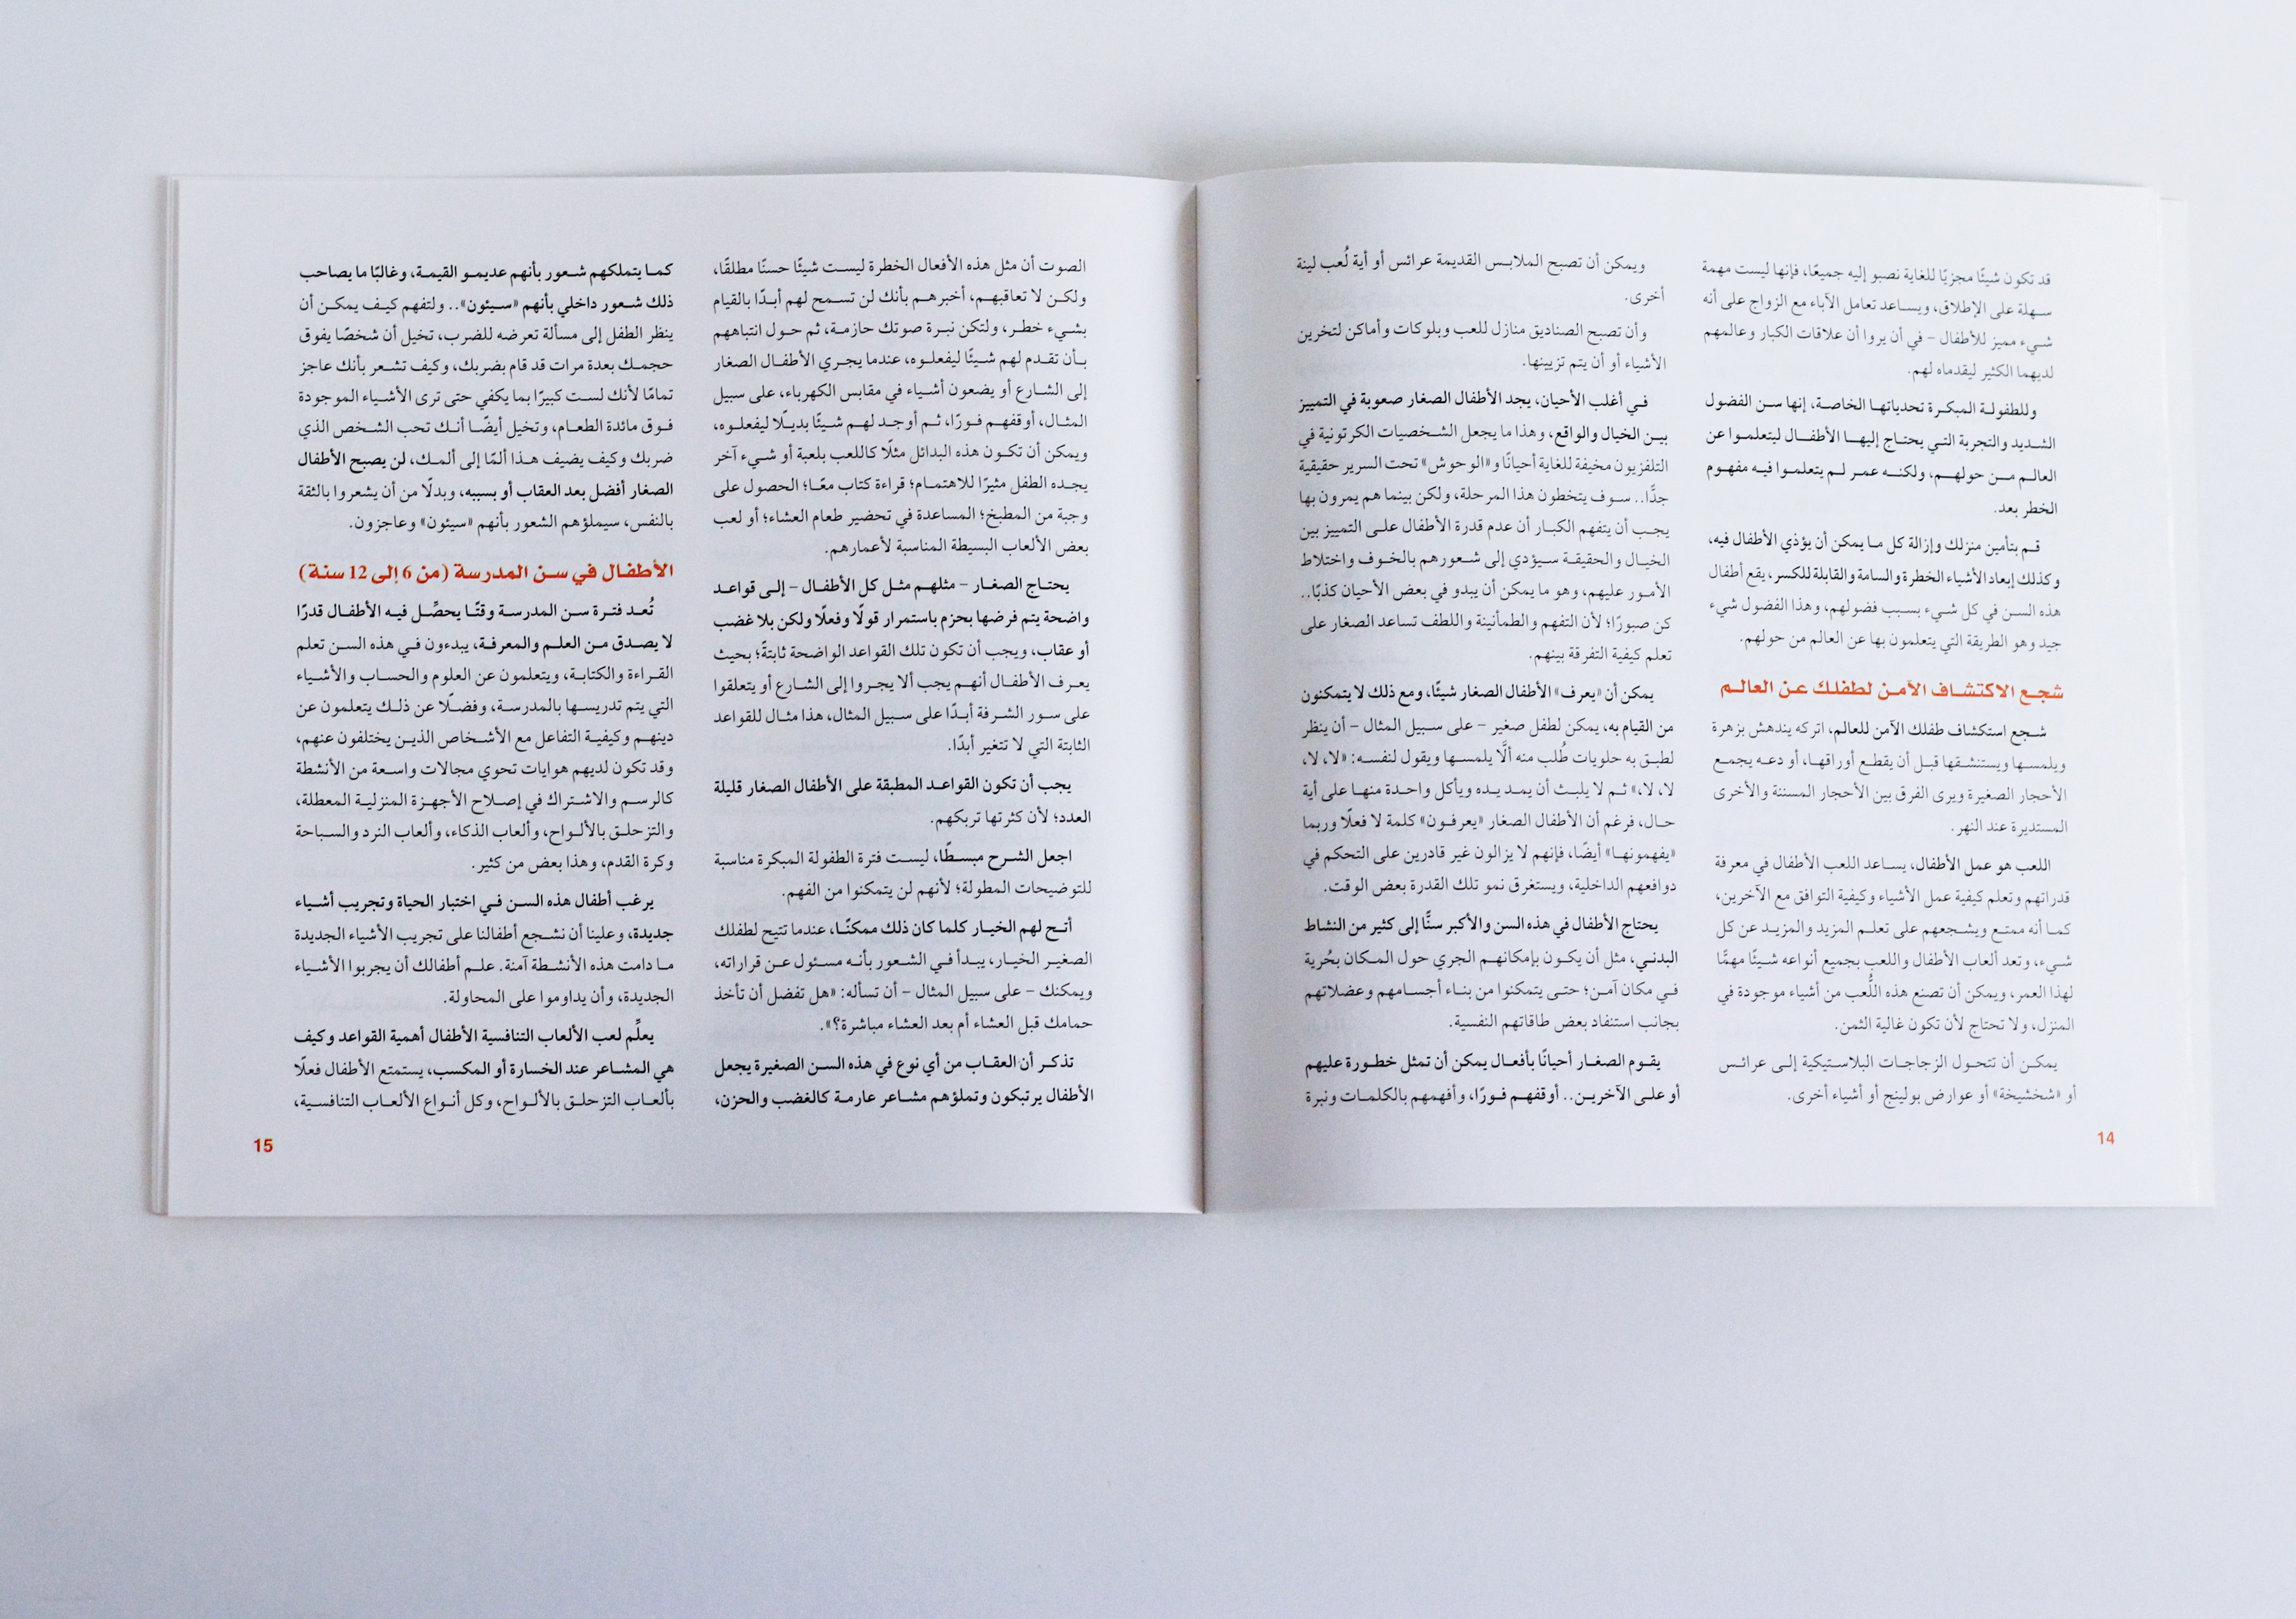 قد تكون شيئًا مجزيًا للغاية نصبو إليه جميعًا، فإنها ليست مهمة
سهلة على الإطلاق، ويساعد تعامل الآباء مع الزواج على أنه
شيء مميز للأطفال – في أن يروا أن علاقات الكبار وعالمهم
لديهما الكثير ليقدماه لهم.
وللطفولة المبكرة تحدياتها الخاصة، إنها سن الفضول
الشديد والتجربة التي يحتاج إليها الأطفال ليتعلموا عن
العالم من حولهم، ولكنه عمر لم يتعلموا فيه مفهوم
الخطر بعد.
قم بتأمين منزلك وإزالة كل ما يمكن أن يؤذي الأطفال فيه،
وكذلك إبعاد الأشياء الخطرة والسامة والقابلة للكسر، يقع أطفال
هذه السن في كل شيء بسبب فضولهم، وهذا الفضول شيء
جيد وهو الطريقة التي يتعلمون بها عن العالم من حولهم.
شجع الاكتشاف الآمن لطفلك عن العالم
شجع استكشاف طفلك الآمن للعالم، اتركه يندهش بزهرة
ويلمسها ويستنشقها قبل أن يقطع أوراقها، أو دعه يجمع
الأحجار الصغيرة ويرى الفرق بين الأحجار المسننة والأخرى
المستديرة عند النهر.
اللعب هو عمل الأطفال، يساعد اللعب الأطفال في معرفة
قدراتهم وتعلم كيفية عمل الأشياء وكيفية التوافق مع الآخرين،
كما أنه ممتع ويشجعهم على تعلم المزيد والمزيد عن كل
شيء، وتعد ألعاب الأطفال واللعب بجميع أنواعه شيئًا مهمًّا
لهذا العمر، ويمكن أن تصنع هذه اللُّعب من أشياء موجودة في
المنزل، ولا تحتاج لأن تكون غالية الثمن.
يمكن أن تتحول الزجاجات البلاستيكية إلى عرائس
أو «شخشيخة» أو عوارض بولينج أو أشياء أخرى.
ويمكن أن تصبح الملابس القديمة عرائس أو أية لُعب لينة
أخرى.
وأن تصبح الصناديق منازل للعب وبلوكات وأماكن لتخرين
الأشياء أو أن يتم تزيينها.
في أغلب الأحيان، يجد الأطفال الصغار صعوبة في التمييز
بين الخيال والواقع، وهذا ما يجعل الشخصيات الكرتونية في
التلفزيون مخيفة للغاية أحيانًا و«الوحوش» تحت السرير حقيقية
جدًّا.. سوف يتخطون هذا المرحلة، ولكن بينما هم يمرون بها
يجب أن يتفهم الكبار أن عدم قدرة الأطفال على التمييز بين
الخيال والحقيقة سيؤدي إلى شعورهم بالخوف واختلاط
الأمور عليهم، وهو ما يمكن أن يبدو في بعض الأحيان كذبًا..
كن صبورًا؛ لأن التفهم والطمأنينة واللطف تساعد الصغار على
تعلم كيفية التفرقة بينهم.
يمكن أن «يعرف» الأطفال الصغار شيئًا، ومع ذلك لا يتمكنون
من القيام به، يمكن لطفل صغير – على سبيل المثال – أن ينظر
لطبق به حلويات طُلب منه ألَّا يلمسها ويقول لنفسه: «لا، لا،
لا، لا،» ثم لا يلبث أن يمد يده ويأكل واحدة منها على أية
حال، فرغم أن الأطفال الصغار «يعرفون» كلمة لا فعلًا وربما
«يفهمونها» أيضًا، فإنهم لا يزالون غير قادرين على التحكم في
دوافعهم الداخلية، ويستغرق نمو تلك القدرة بعض الوقت.
يحتاج الأطفال في هذه السن والأكبر سنًّا إلى كثير من النشاط
البدني، مثل أن يكون بإمكانهم الجري حول المكان بحُرية
في مكان آمن؛ حتى يتمكنوا من بناء أجسامهم وعضلاتهم
بجانب استنفاد بعض طاقاتهم النفسية.
يقوم الصغار أحيانًا بأفعال يمكن أن تمثل خطورة عليهم
أو على الآخرين.. أوقفهم فورًا، وأفهمهم بالكلمات ونبرة
14
الصوت أن مثل هذه الأفعال الخطرة ليست شيئًا حسنًا مطلقًا،
ولكن لا تعاقبهم، أخبرهم بأنك لن تسمح لهم أبدًا بالقيام
بشيء خطر، ولتكن نبرة صوتك حازمة، ثم حول انتباههم
بأن تقدم لهم شيئًا ليفعلوه، عندما يجري الأطفال الصغار
إلى الشارع أو يضعون أشياء في مقابس الكهرباء، على سبيل
المثال، أوقفهم فورًا، ثم أوجد لهم شيئًا بديلًا ليفعلوه،
ويمكن أن تكون هذه البدائل مثلًا كاللعب بلعبة أو شيء آخر
يجده الطفل مثيرًا للاهتمام؛ قراءة كتاب معًا؛ الحصول على
وجبة من المطبخ؛ المساعدة في تحضير طعام العشاء؛ أو لعب
بعض الألعاب البسيطة المناسبة لأعمارهم.
يحتاج الصغار – مثلهم مثل كل الأطفال – إلى قواعد
واضحة يتم فرضها بحزم باستمرار قولًا وفعلًا ولكن بلا غضب
أو عقاب، ويجب أن تكون تلك القواعد الواضحة ثابتةً؛ بحيث
يعرف الأطفال أنهم يجب ألا يجروا إلى الشارع أو يتعلقوا
على سور الشرفة أبدًا على سبيل المثال، هذا مثال للقواعد
الثابتة التي لا تتغير أبدًا.
يجب أن تكون القواعد المطبقة على الأطفال الصغار قليلة
العدد؛ لأن كثرتها تربكهم.
اجعل الشرح مبسطًا، ليست فترة الطفولة المبكرة مناسبة
للتوضيحات المطولة؛ لأنهم لن يتمكنوا من الفهم.
أتح لهم الخيار كلما كان ذلك ممكنًا، عندما تتيح لطفلك
الصغير الخيار، يبدأ في الشعور بأنه مسئول عن قراراته،
ويمكنك – على سبيل المثال – أن تسأله: «هل تفضل أن تأخذ
حمامك قبل العشاء أم بعد العشاء مباشرة؟».
تذكر أن العقاب من أي نوع في هذه السن الصغيرة يجعل
الأطفال يرتبكون وتملؤهم مشاعر عارمة كالغضب والحزن،
كما يتملكهم شعور بأنهم عديمو القيمة، وغالبًا ما يصاحب
ذلك شعور داخلي بأنهم «سيئون».. ولتفهم كيف يمكن أن
ينظر الطفل إلى مسألة تعرضه للضرب، تخيل أن شخصًا يفوق
حجمك بعدة مرات قد قام بضربك، وكيف تشعر بأنك عاجز
تمامًا لأنك لست كبيرًا بما يكفي حتى ترى الأشياء الموجودة
فوق مائدة الطعام، وتخيل أيضًا أنك تحب الشخص الذي
ضربك وكيف يضيف هذا ألمًا إلى ألمك، لن يصبح الأطفال
الصغار أفضل بعد العقاب أو بسببه، وبدلًا من أن يشعروا بالثقة
بالنفس، سيملؤهم الشعور بأنهم «سيئون» وعاجزون.
الأطفال في سن المدرسة (من 6 إلى 12 سنة)
تُعد فترة سن المدرسة وقتًا يحصِّل فيه الأطفال قدرًا
لا يصدق من العلم والمعرفة، يبدءون في هذه السن تعلم
القراءة والكتابة، ويتعلمون عن العلوم والحساب والأشياء
التي يتم تدريسها بالمدرسة، وفضلًا عن ذلك يتعلمون عن
دينهم وكيفية التفاعل مع الأشخاص الذين يختلفون عنهم،
وقد تكون لديهم هوايات تحوي مجالات واسعة من الأنشطة
كالرسم والاشتراك في إصلاح الأجهزة المنزلية المعطلة،
والتزحلق بالألواح، وألعاب الذكاء، وألعاب النرد والسباحة
وكرة القدم، وهذا بعض من كثير.
يرغب أطفال هذه السن في اختبار الحياة وتجريب أشياء
جديدة، وعلينا أن نشجع أطفالنا على تجريب الأشياء الجديدة
ما دامت هذه الأنشطة آمنة. علم أطفالك أن يجربوا الأشياء
الجديدة، وأن يداوموا على المحاولة.
يعلِّم لعب الألعاب التنافسية الأطفال أهمية القواعد وكيف
هي المشاعر عند الخسارة أو المكسب، يستمتع الأطفال فعلًا
بألعاب التزحلق بالألواح، وكل أنواع الألعاب التنافسية،
15